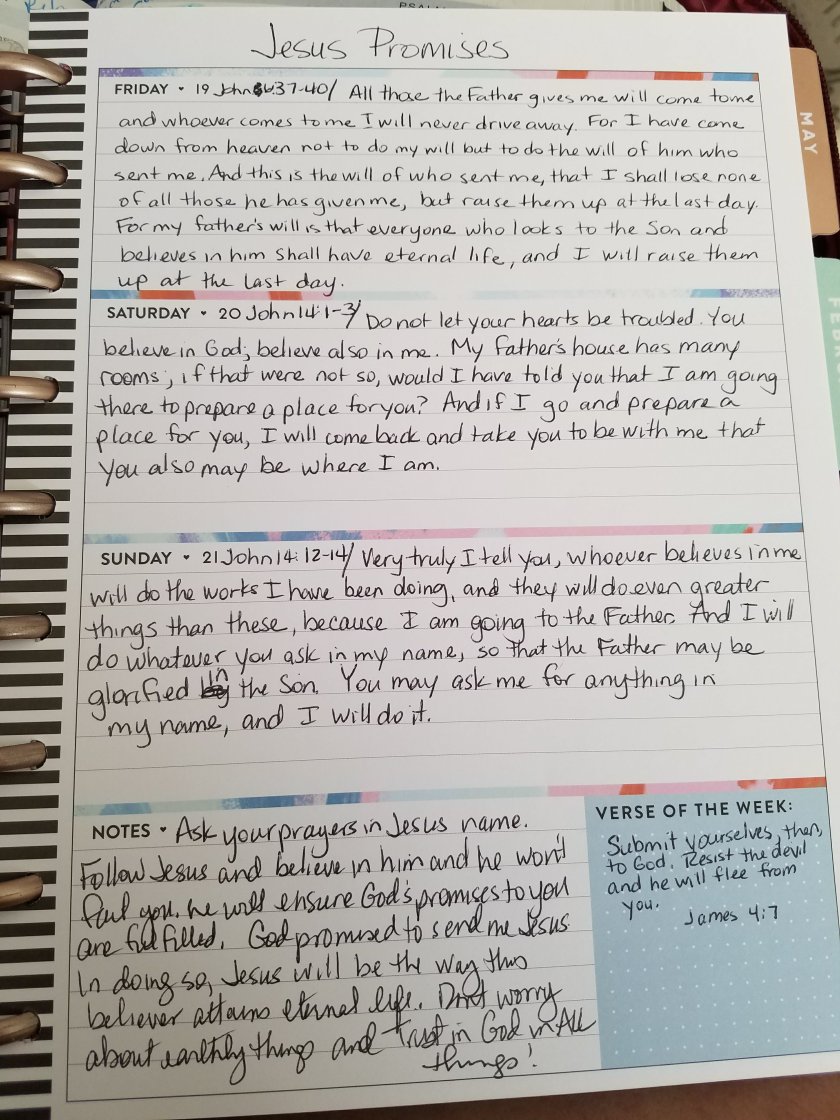 Jesus Promises
FRIDAY • 19 John 6:37-40/ All those the Father gives me will come to me
and whoever comes to me I will never drive away. For I have come
down from heaven not to do my will but to do the will of him who
sent me. And this is the will of who sent me, that I shall lose none
of all those he has given me, but raise them up at the last day.
For my father's will is that everyone who looks to the Son and
believes in him shall have eternal life, and I will raise them
up at the last day.
SATURDAY • 20 John 14:1-3/ Do not let your hearts be troubled. You
believe in God; believe also in me. My Father's house has many
rooms; if that were not so, would I have told you that I am going
there to prepare a place for you? And if I go and prepare a
place for you, I will come back and take you to be with me that
you also may be where I am.
SUNDAY • 21 John 14:12-14/ Very truly I tell you, whoever believes in me
will do the works I have been doing, and they will do even greater
things than these, because I am going to the Father. And I will
do whatever you ask in my name, so that the Father may be
glorified in the Son. You may ask me for anything in
my name, and I will do it.
NOTES • Ask your prayers in Jesus name.
Follow Jesus and believe in him and he won't
fail you. he will ensure God's promises to you
are fulfilled. God promised to send me Jesus
In doing so, Jesus will be the way this
believer attains eternal life. Don't worry
about earthly things and trust in God in All
things!
VERSE OF THE WEEK:
Submit yourselves, then,
to God. Resist the devil
and he will flee from
you.
James 4:7
MAY